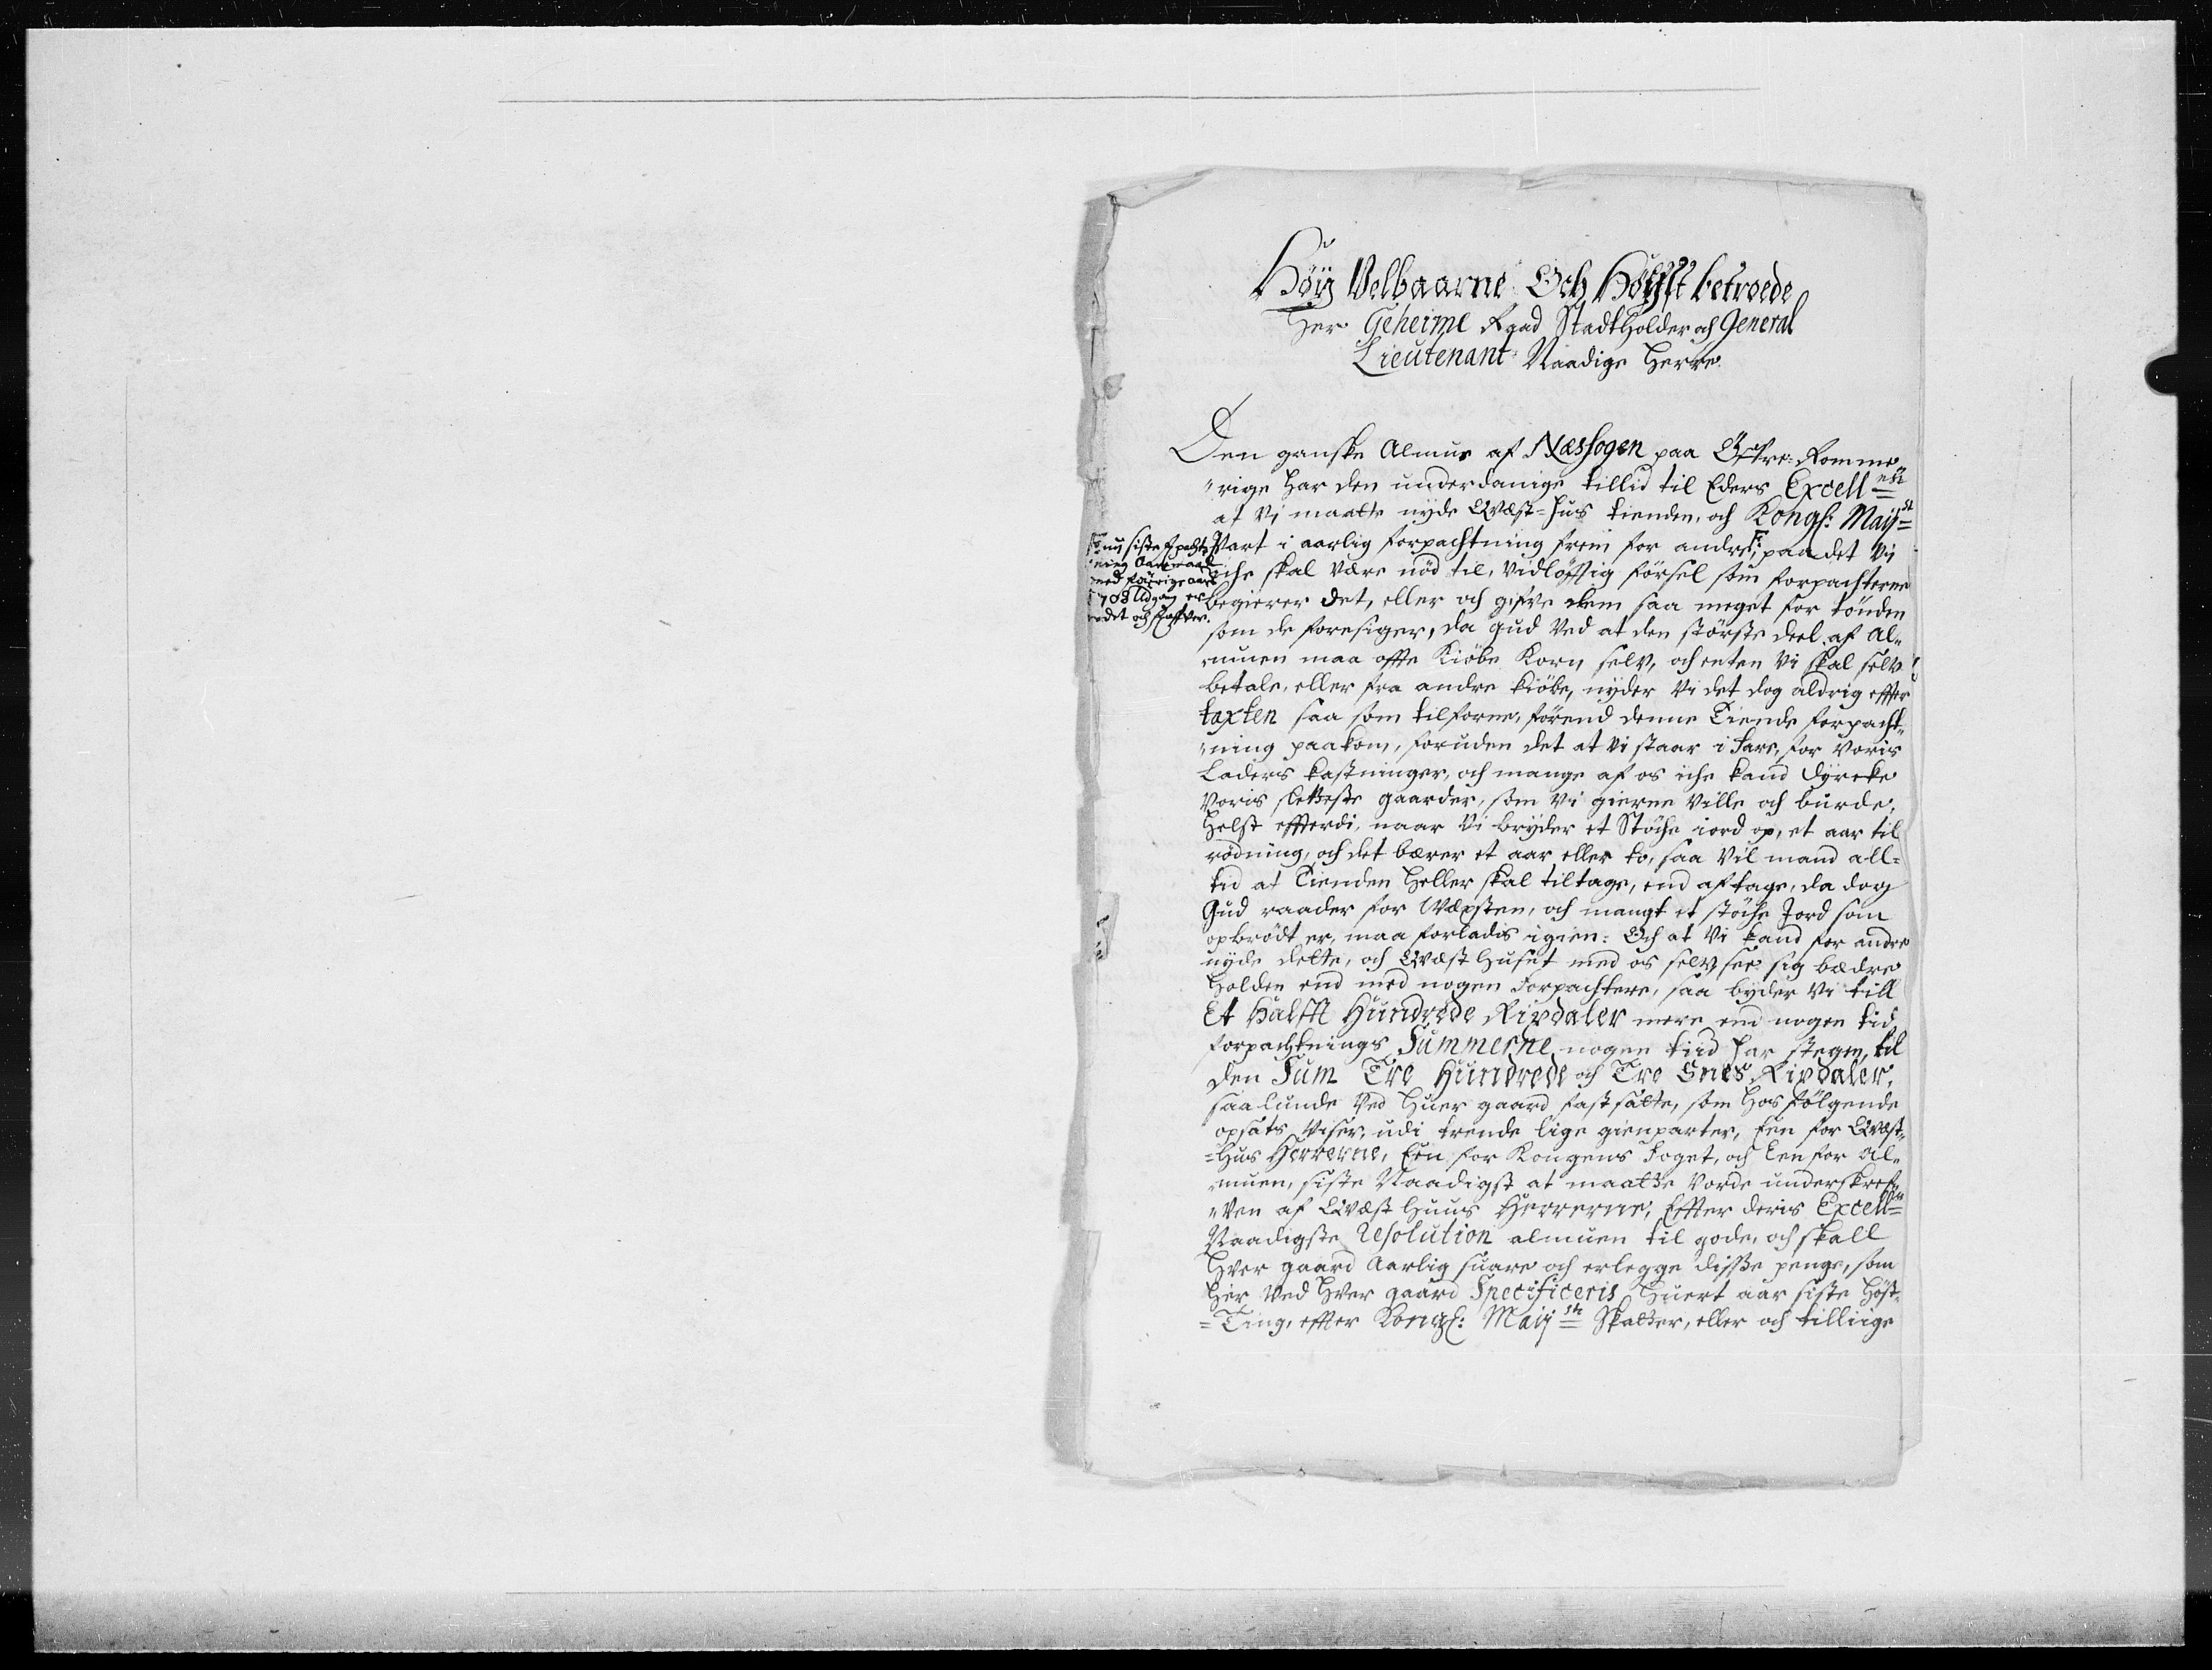 Høÿ Velbaarne Och Høÿst betroede
Her Geheime Raad Stadtholder och General
Lieutenant Naadige Herre
Den ganske Almue af Næssogen paa Østre Romme
"rige har den underdanige tillid til Eders Excell
at Vi maatte nyde Qvæst-hus tienden, och Kongl: Maij
Part i aarlig forpachtning frem for andre, paa det Vi
iche skal være nød til, vidløfftig førsel som forpachterne
begierer det, eller och gifve dem saa meget for tønden
nu siste fpacht
ning Aaremaal
med forrige aars
708 Udgang er
som de foresiger, da gud Ved at den største deel af al„
muen maa offte Kiøbe Korn selv, och enten Vi skal selv
betale, eller fra andre kiøbe, nyder Vi det dog aldrig effter
taxten saa som tilforne, førend denne Tiende forpacht„
„ning paakom, foruden det at Vi staar i fare, for Voris
Laders kastninger, och mange af os iche kand dyrcke
Voris sletteste gaarder, som Vi gierne Ville och burde,
Helst effterdi, naar Vi bryder et Støche iord op, et aar til
rødning, och det bærer et aar eller to, saa Vil mand all=
tid at Tienden heller skal tiltage, end aftage, da dog
Gud raader for Væxten, och mangt et støche Jord som
opbrødt er, maa forladis igien: Och at Vi kand for andre
nyde dette, och Qvæst Huset med os selv see sig bædre
holden end med nogen Forpachtere, saa byder Vi till
Et halfft Hundrede Rixdaler mere end nogen tid
forpachtnings Summerne nogen tiid har stegen, til
den Sum Tre Hundrede och Tre Snes Rixdaler,
saalunde Ved Huer gaard fastsatte, som hos følgende
opsats Viser, udi trende lige gienparter, Een for Qvæst„
=Hus Herrerne, Een for Kongens Foget, och Een for al„
muen, siste Naadigst at maatte Vorde underskref„
„Ven af Qvæst Huus Herrerne, Effter deris Excell
Naadigste Resolution almuen til gode, och skall
Hver gaard Aarlig suare och erlegge disse penge, som
her Ved Hver gaard Specificeris Huert aar siste Høst„
=Ting, effter Kongl: Maij Skatter, eller och tilliige